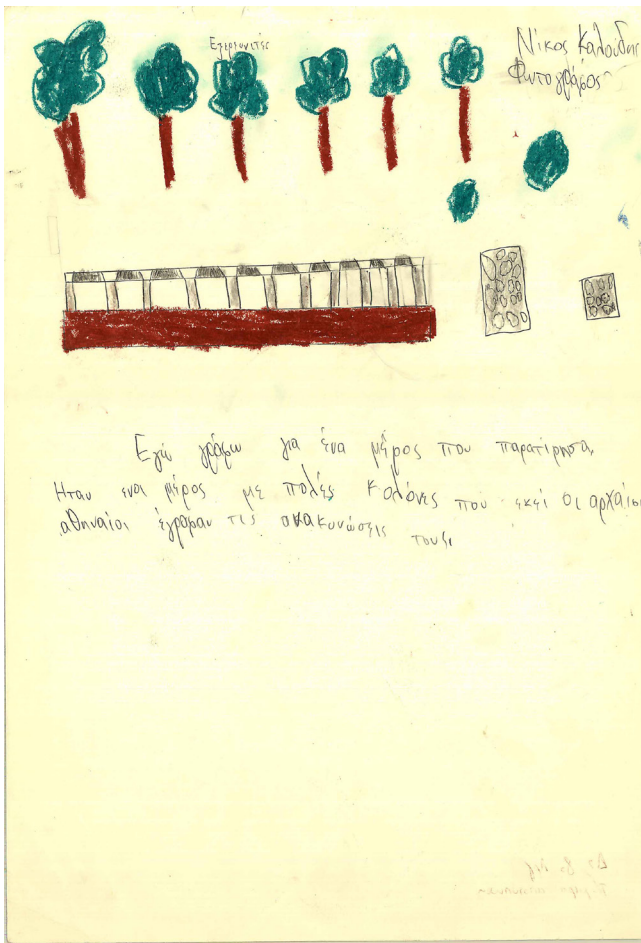 Νίκος Καλούδης
Φωτογράφος
Εγώ γράφω για ένα μέρος που παρατίρησα,
Ηταν ενα μέρος με πολές κολόνες που εκεί οι αρχαίοι
αθηναίοι έγραφαν τις ανακυνώσεις τους.